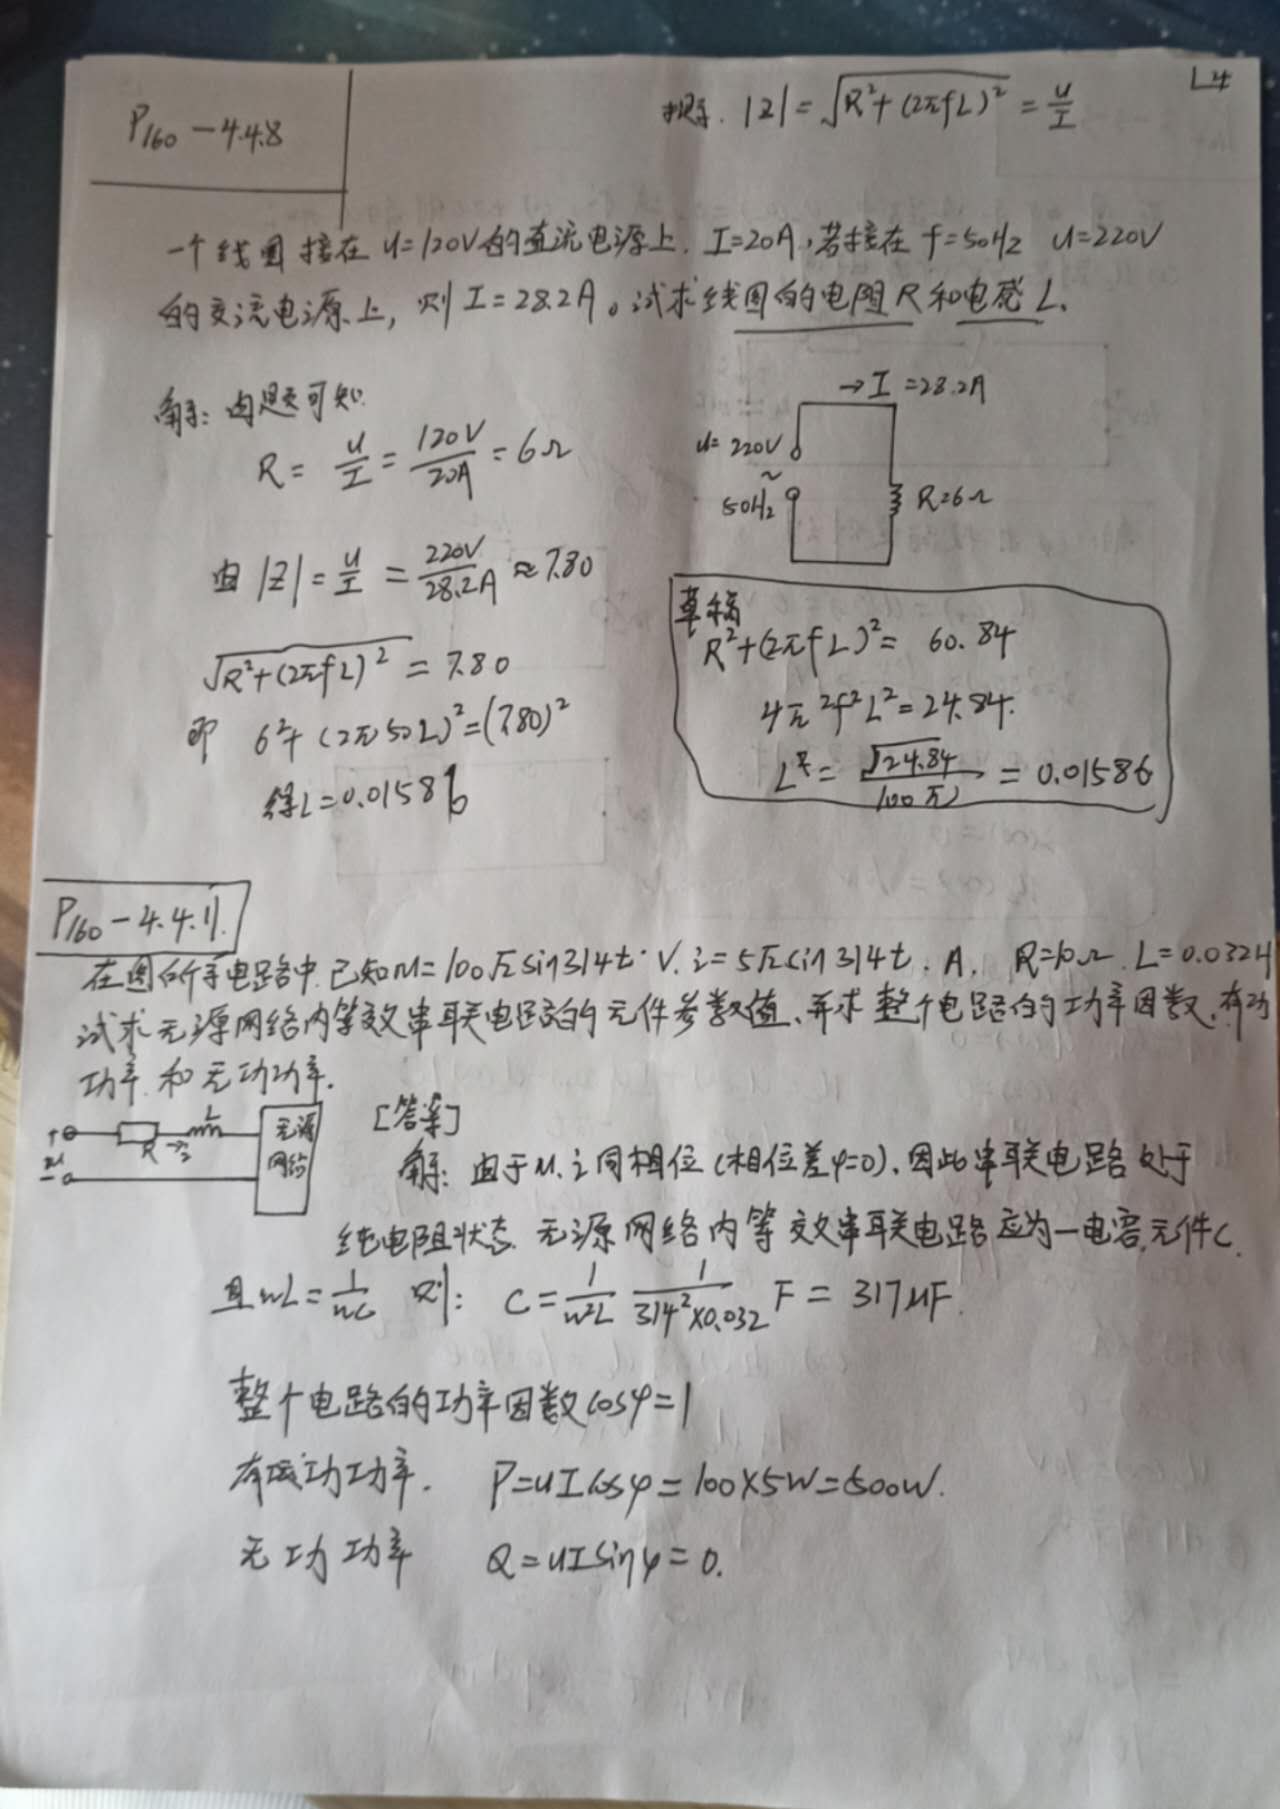 L4
P160-4.4.8
提示. |Z|=√R²+(2πfL)² = U/I
一个线圈接在U=120V的直流电源上. I=20A,若接在 f=50Hz U=220V
的交流电源上, 则I=28.2A。试求线圈的电阻R和电感L.
解: 由题可知.
R= U/I = 120V/20A = 6Ω
由|Z|= U/I = 220V/28.2A ≈7.80
√R²+(2πfL)² = 7.80
即 6²+(2π50L)²=(7.80)²
得L=0.01586
→I=28.2A
U=220V
~
50Hz
R=6Ω
草稿
R²+(2πfL)²= 60.84
4π²f²L²=24.84.
L = √24.84/100π = 0.01586
P160-4.4.11.
在图所示电路中.已知u=100√2sin314t·V. i=5√2sin314t. A. R=10Ω. L=0.032H
试求无源网络内等效串联电路的元件参数值、并求整个电路的功率因数、有功
功率和无功功率.
+
u
-
R
→i
L
无源
网络
[答案]
解: 由于u、i同相位(相位差φ=0)、因此串联电路处于
纯电阻状态. 无源网络内等效串联电路应为一电容元件C.
且wL=1/wC 则: C=1/w²L 1/314²×0.032 F = 317μF.
整个电路的功率因数cosφ=1
有功功率. P=UIcosφ=100×5W=500W.
无功功率 Q=UIsinφ=0.